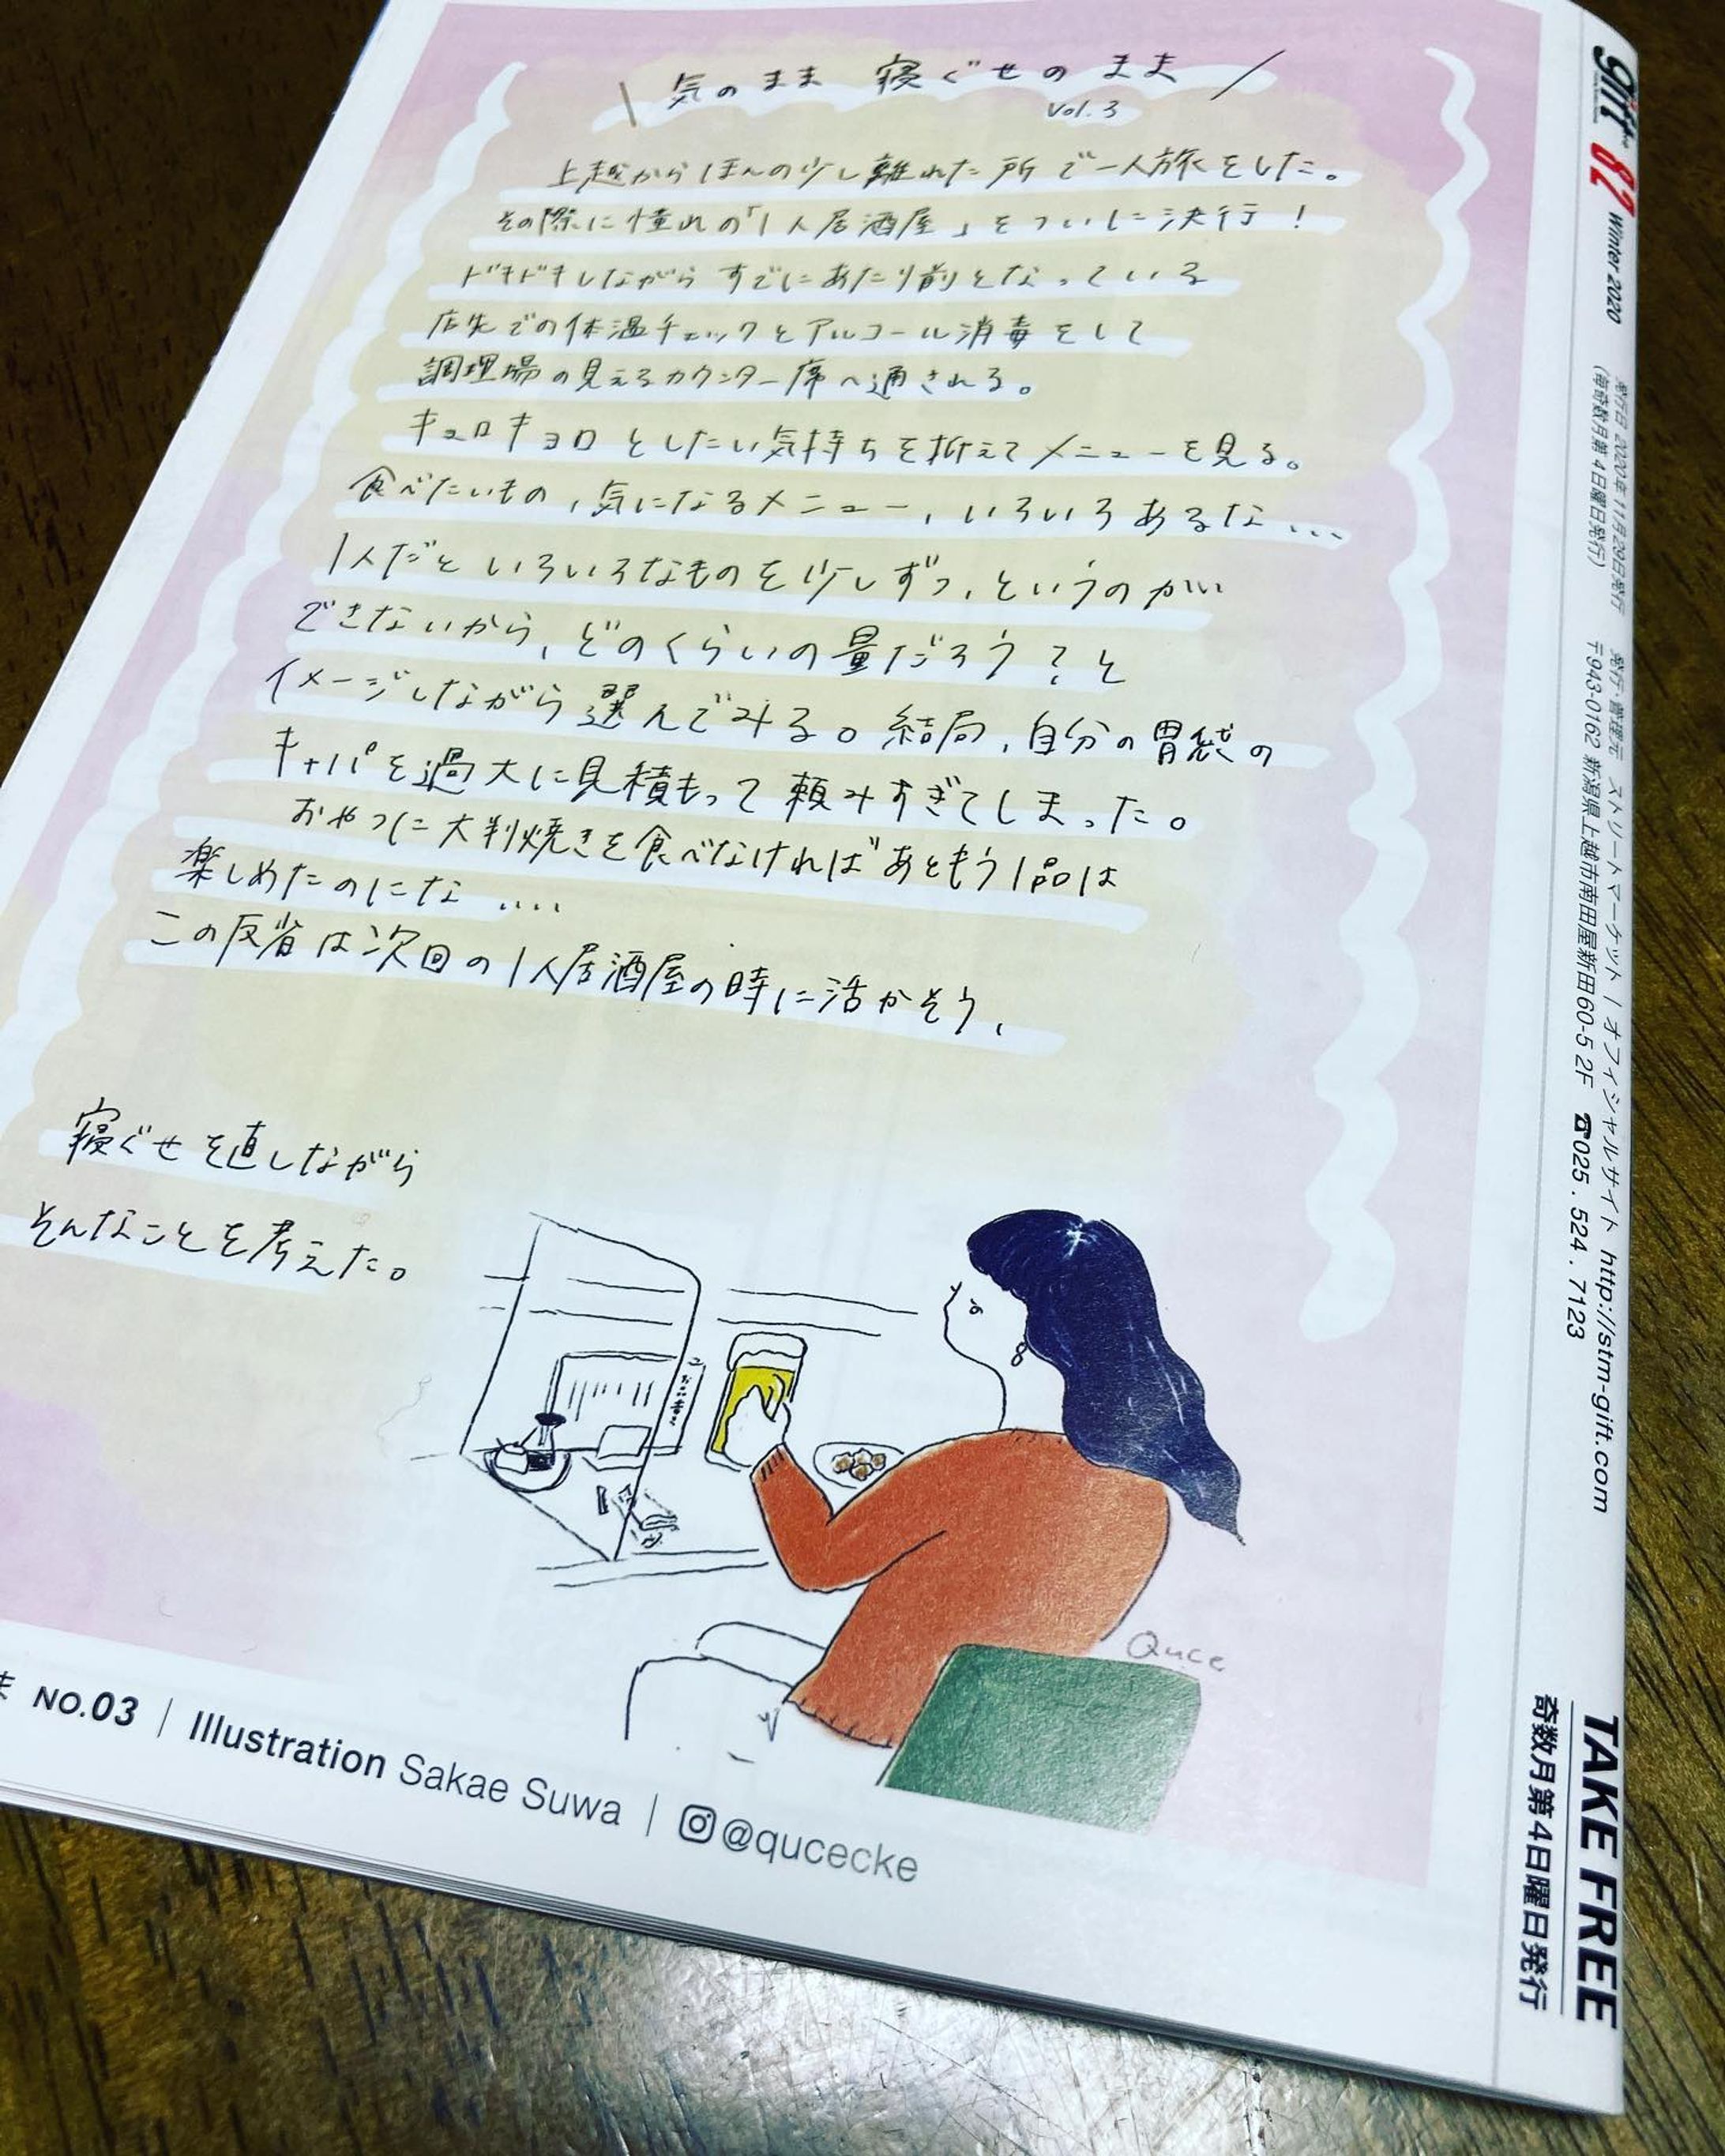 気のまま 寝ぐせのまま
Vol.3
上越からほんの少し離れた所で一人旅をした。
その際に憧れの「1人居酒屋」をついに決行!
ドキドキしながら すでにあたり前となっている
店先での体温チェックとアルコール消毒をして
調理場の見えるカウンター席へ通される。
キョロキョロとしたい気持ちを抑えてメニューを見る。
食べたいもの、気になるメニュー、いろいろあるな...
1人だといろいろなものを少しずつ、というのが
できないから、どのくらいの量だろう?と
イメージしながら選んでみる。結局、自分の胃袋の
キャパを過大に見積もって頼みすぎてしまった。
おやつに大判焼きを食べなければあともう1品は
楽しめたのにな....
この反省は次回の1人居酒屋の時に活かそう、
寝ぐせを直しながら
そんなことを考えた。
Quce
ま NO.03 | Illustration Sakae Suwa | @qucecke
gift 82 Winter 2020
発行日 2020年11月29日発行
(毎奇数月第4日曜日発行)
発行・管理元 ストリートマーケット | オフィシャルサイト http://stm-gift.com
〒943-0162 新潟県上越市南田屋新田60-5 2F ☎025.524.7123
TAKE FREE
奇数月第4日曜日発行